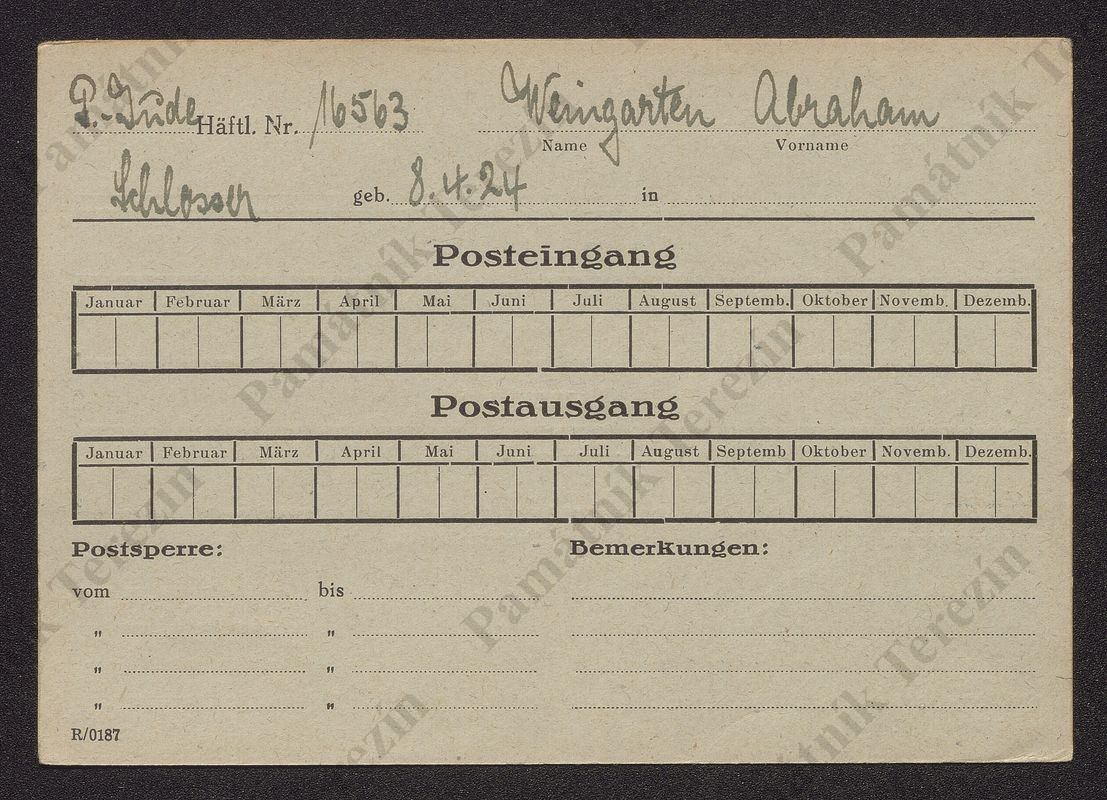 P.-Jude Häftl. Nr. 16563 Weingarten Abraham
Name Vorname
Schlosser geb. 8.4.24 in
Posteingang
Januar Februar März April Mai Juni Juli August Septemb. Oktober Novemb. Dezemb.
Postausgang
Januar Februar März April Mai Juni Juli August Septemb Oktober Novemb. Dezemb.
Postsperre: Bemerkungen:
vom bis
" "
" "
" "
R/0187
Památník Terezín